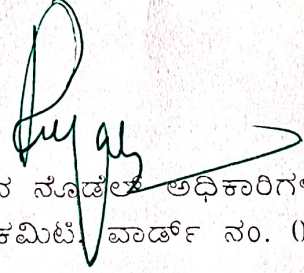 ನೊಡೆಲ್ ಅಧಿಕಾರಿಗಳ
ಕಮಿಟಿ, ವಾರ್ಡ್ ನಂ.